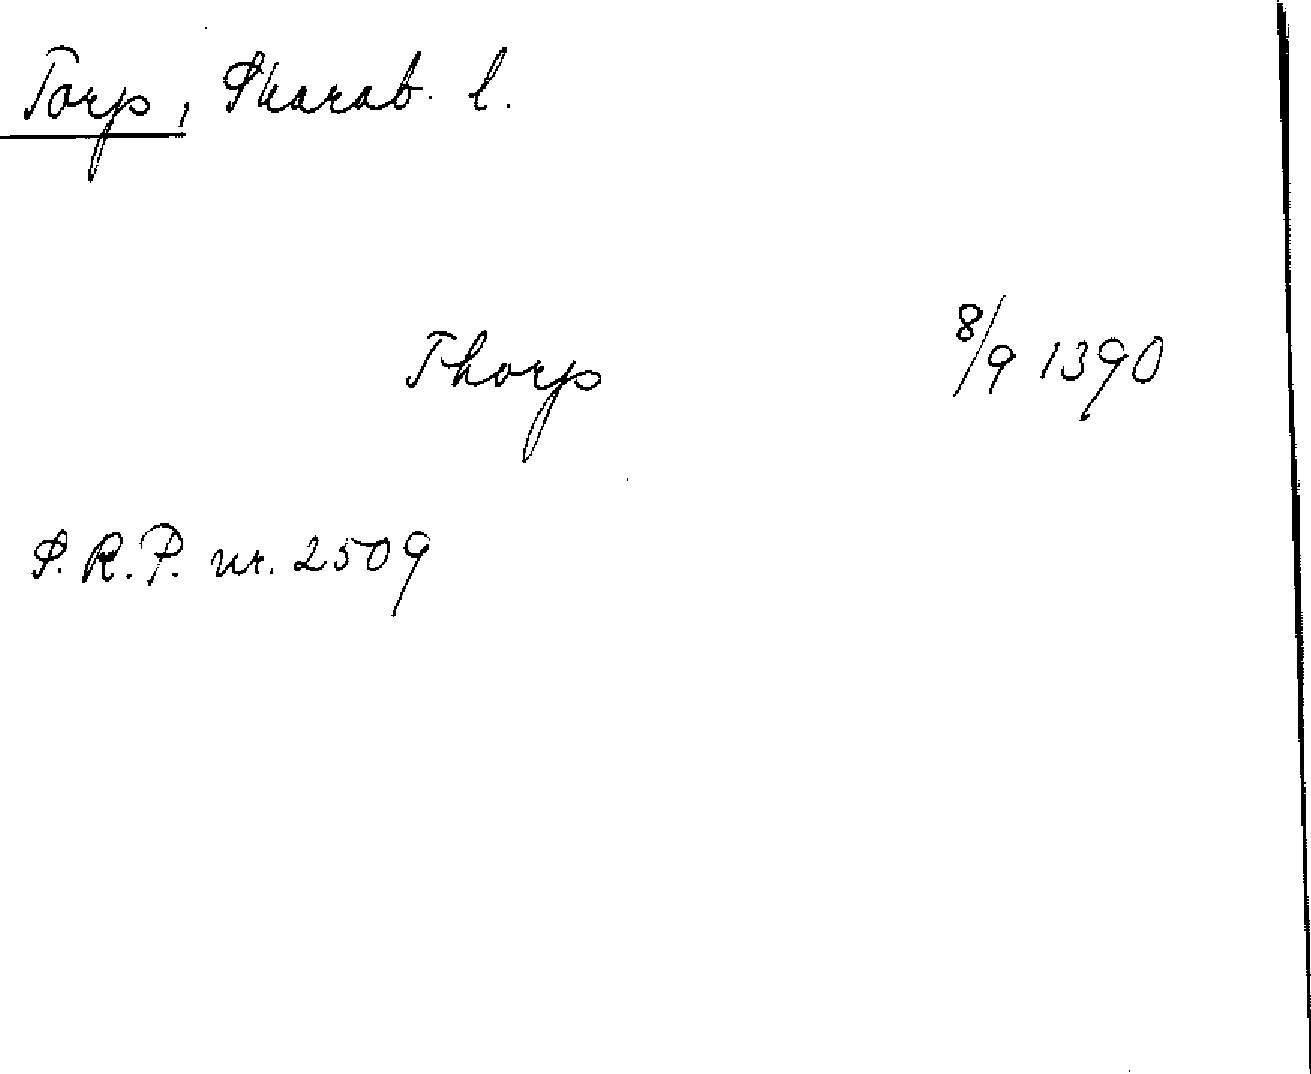 Torp, Skarab. l.
Thorp 8/9 1390
S.R.P. nr. 2509